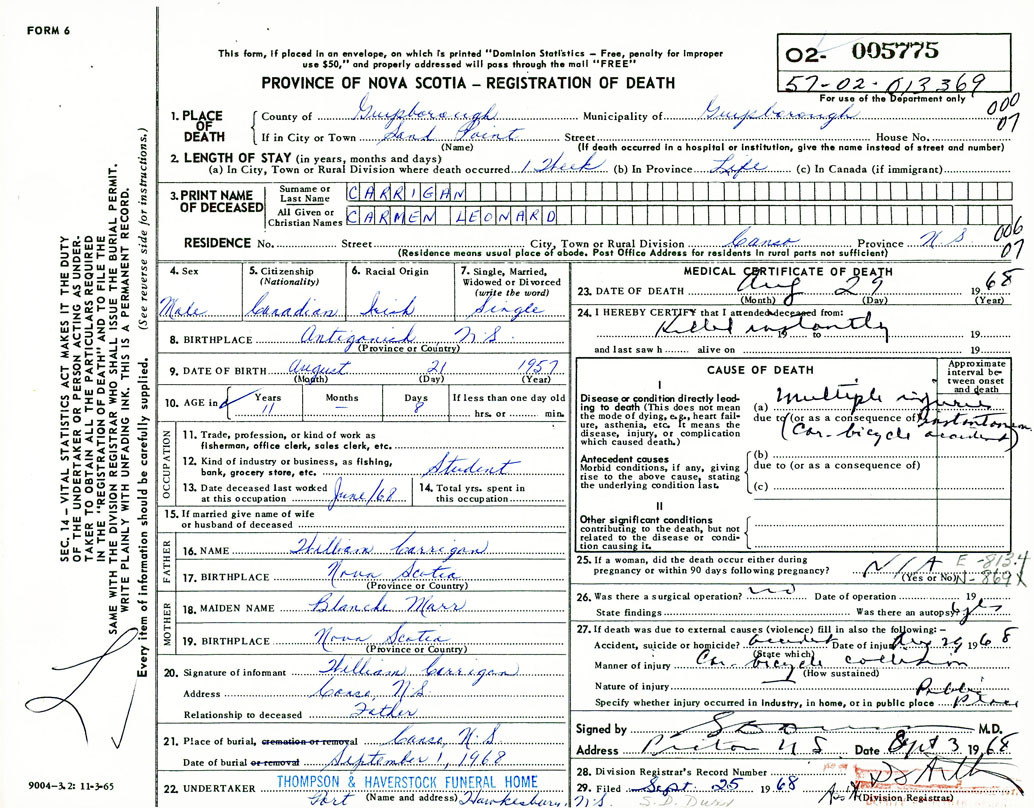 FORM 6
This form, if placed in an envelope, on which is printed "Dominion Statistics – Free, penalty for improper
use $50," and properly addressed will pass through the mail "FREE"
PROVINCE OF NOVA SCOTIA – REGISTRATION OF DEATH
02- 005775
57-02-013369
For use of the Department only
000
07
1. PLACE OF DEATH
County of Guysborough Municipality of Guysborough
If in City or Town Sand Point Street House No.
(Name) (If death occurred in a hospital or institution, give the name instead of street and number)
2. LENGTH OF STAY (in years, months and days)
(a) In City, Town or Rural Division where death occurred 1 Week (b) In Province Life (c) In Canada (if immigrant)
3. PRINT NAME OF DECEASED
Surname or Last Name CARRIGAN
All Given or Christian Names CARMEN LEONARD
006
07
RESIDENCE No. Street City, Town or Rural Division Canso Province N S
(Residence means usual place of abode. Post Office Address for residents in rural parts not sufficient)
4. Sex Male
5. Citizenship (Nationality) Canadian
6. Racial Origin Irish
7. Single, Married, Widowed or Divorced (write the word) Single
8. BIRTHPLACE Antigonish N.S.
(Province or Country)
9. DATE OF BIRTH August 21 1957
(Month) (Day) (Year)
10. AGE in Years 11 Months – Days 8 If less than one day old hrs. or min.
OCCUPATION
11. Trade, profession, or kind of work as
fisherman, office clerk, sales clerk, etc.
12. Kind of industry or business, as fishing,
bank, grocery store, etc. Student
13. Date deceased last worked
at this occupation June/68
14. Total yrs. spent in
this occupation
15. If married give name of wife
or husband of deceased
FATHER
16. NAME William Carrigan
17. BIRTHPLACE Nova Scotia
(Province or Country)
MOTHER
18. MAIDEN NAME Blanche Marr
19. BIRTHPLACE Nova Scotia
(Province or Country)
20. Signature of informant William Carrigan
Address Canso, N.S
Relationship to deceased Father
21. Place of burial, cremation or removal Canso, N.S
Date of burial or removal September 1, 1968
22. UNDERTAKER THOMPSON & HAVERSTOCK FUNERAL HOME
(Name and address) Port Hawkesbury, N.S.
MEDICAL CERTIFICATE OF DEATH
23. DATE OF DEATH Aug 29 1968
(Month) (Day) (Year)
24. I HEREBY CERTIFY that I attended deceased from:
Killed instantly
19 to 19
and last saw h alive on 19
CAUSE OF DEATH
Approximate interval between onset and death
I
Disease or condition directly lead-
ing to death (This does not mean
the mode of dying, e.g., heart fail-
ure, asthenia, etc. It means the
disease, injury, or complication
which caused death.)
(a) Multiple injuries
due to (or as a consequence of)
(Car-bicycle accident)
Antecedent causes
Morbid conditions, if any, giving
rise to the above cause, stating
the underlying condition last.
(b)
due to (or as a consequence of)
(c)
II
Other significant conditions
contributing to the death, but not
related to the disease or condi-
tion causing it.
25. If a woman, did the death occur either during
pregnancy or within 90 days following pregnancy? N/A
(Yes or No)
E-813.4
N-869
26. Was there a surgical operation? no Date of operation 19
State findings Was there an autopsy? yes
27. If death was due to external causes (violence) fill in also the following: –
Accident, suicide or homicide? accident Date of injury Aug 29, 1968
(State which)
Manner of injury Car-bicycle collision
(How sustained)
Nature of injury
Specify whether injury occurred in Industry, in home, or in public place Public place
Signed by M.D.
Address N S Date Sept 3 1968
28. Division Registrar's Record Number
29. Filed Sept. 25 1968
(Division Registrar)
SEC. 14 – VITAL STATISTICS ACT MAKES IT THE DUTY
OF THE UNDERTAKER OR PERSON ACTING AS UNDER-
TAKER TO OBTAIN ALL THE PARTICULARS REQUIRED
IN THE "REGISTRATION OF DEATH" AND TO FILE THE
SAME WITH THE DIVISION REGISTRAR WHO SHALL ISSUE THE BURIAL PERMIT.
WRITE PLAINLY WITH UNFADING INK. THIS IS A PERMANENT RECORD.
Every item of information should be carefully supplied. (See reverse side for instructions.)
9004-3.2: 11-3-65